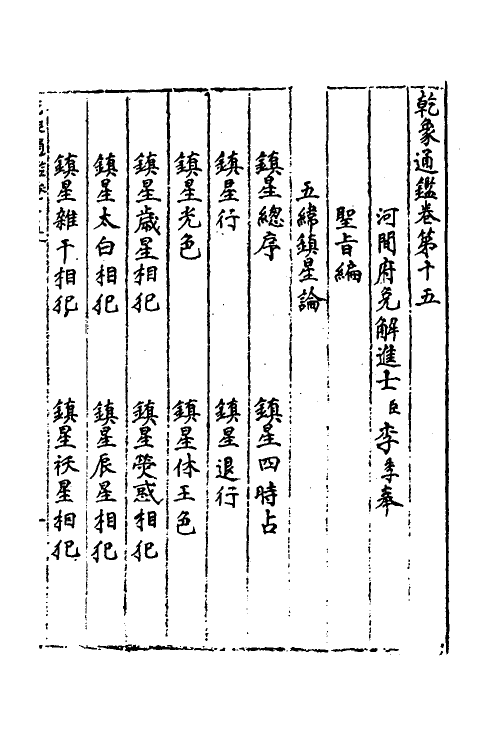 乾象通鑑卷第十五
河間府免解進士臣李季奉
聖旨編
五緯鎮星論
鎮星總序 鎮星四時占
鎮星行 鎮星退行
鎮星光色 鎮星休王色
鎮星歲星相犯 鎮星熒惑相犯
鎮星太白相犯 鎮星辰星相犯
鎮星雜干相犯 鎮星祅星相犯
一